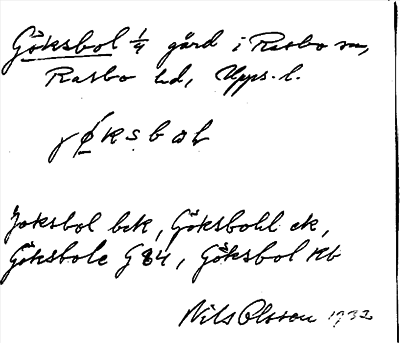 Göksbol 1/4 gård i Rasbo sn,
Rasbo hd, Upps. l.
Joksbol bek, Göksbohl ek,
Göksbole G 84, Göksbol kb
Nils Olsson 1932